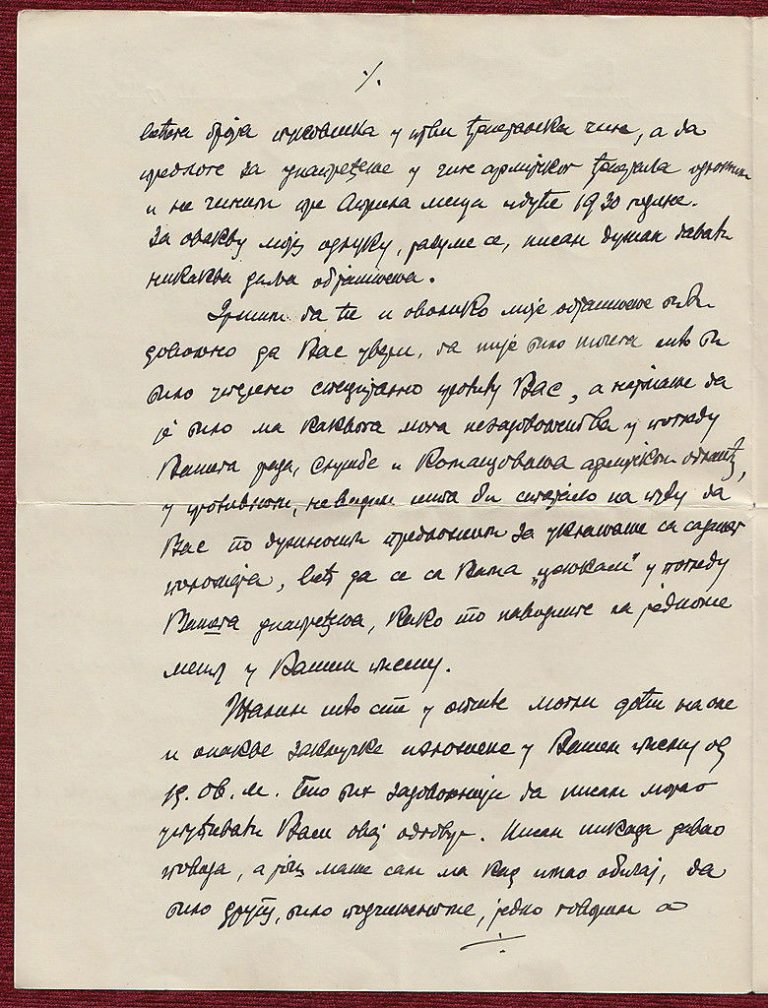 ·/.
већега броја пуковника у први ђенералски чин, а да
предлоге за унапређење у чин армијског ђенерала
и не чиним пре Априла месеца идуће 1930 године.
За овакву моју одлуку, разуме се, нисам дужан давати
никаква даља објашњења.
Држим да ће и оволико моје објашњење бити
довољно да Вас увери, да није било ничега што би
било уперено специјално противу Вас, а најмање да
је било ма каквога мога незадовољства у погледу
Вашега рада, службе и Командовања армијском облашћу,
у противном, не видим шта би стајало на путу да
Вас по дужности предложим за уклањање са садањег
положаја, већ да се са Вама „ «цењкам“ у погледу
Вашега унапређења, како то наводите на једноме
месту у Вашем писму.
Жалим што сте у опште могли доћи на оне
и онакве закључке изложене у Вашем писму од
19. ов. м. Био бих задовољнији да нисам морао
упућивати Вам овај одговор. Нисам никада давао
повода, а још мање сам ма кад имао обичај, да
било другу, било потчињеноме, једно говорим а